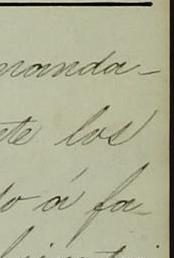 manda-
te los
do á fa-